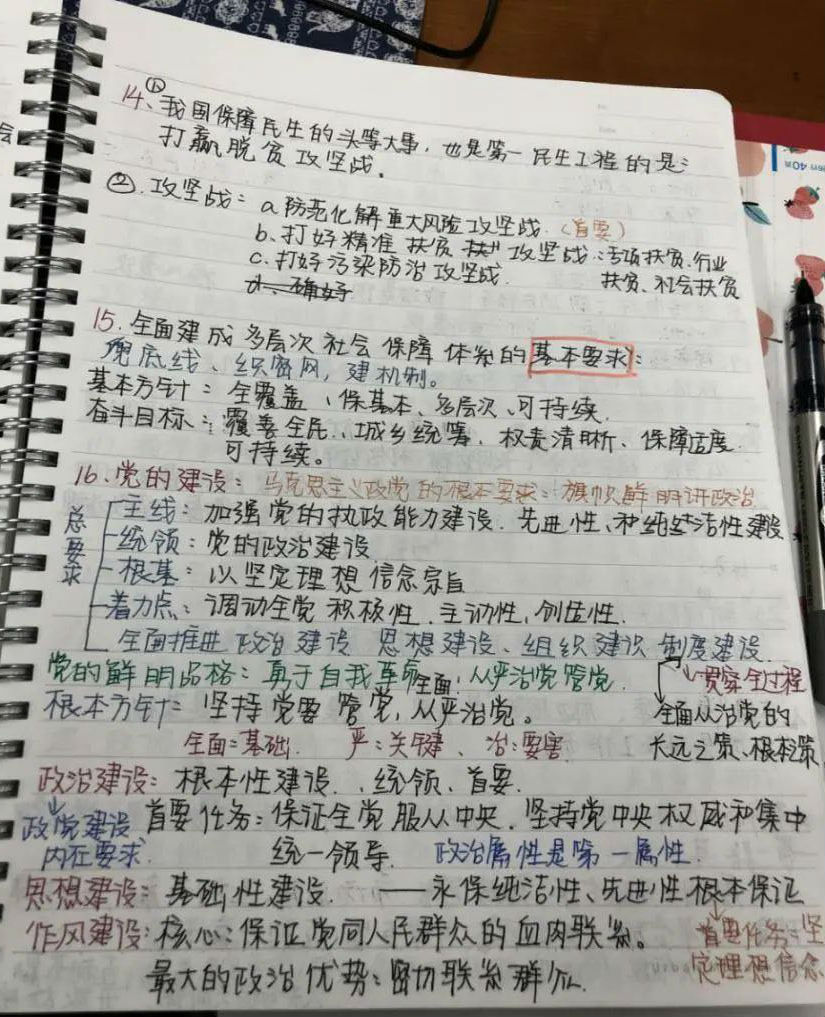 14、①我国保障民生的头等大事，也是第一民生工程的是：
打赢脱贫攻坚战。
②.攻坚战：a防范化解重大风险攻坚战.（首要）
b、打好精准扶贫 攻坚战：专项扶贫、行业
扶贫、社会扶贫
c、打好污染防治攻坚战.
15.全面建成多层次社会保障体系的基本要求：
兜底线、织密网，建机制。
基本方针：全覆盖、保基本、多层次、可持续.
奋斗目标：覆盖全民、城乡统筹、权责清晰、保障适度.
可持续。
16、党的建设：马克思主义政党的根本要求：旗帜鲜明讲政治
总要求
主线：加强党的执政能力建设.先进性、和纯洁性建设
统领：党的政治建设
根基：以坚定理想信念宗旨
着力点：调动全党积极性.主动性，创造性.
全面推进政治建设 思想建设、组织建设 制度建设.
党的鲜明品格：勇于自我革命 全面，从严治党管党. 贯穿全过程
根本方针：坚持党要管党，从严治党。 全面从治党的
长远之策、根本策
全面：基础. 严：关键、治：要害
政治建设：根本性建设.、统领、首要.
政党建设
内在要求.
首要任务：保证全党服从中央.坚持党中央权威和集中
统一领导. 政治属性是第一属性.
思想建设：基础性建设. ——永保纯洁性、先进性根本保证
首要任务：坚
定理想信念
作风建设：核心：保证党同人民群众的血肉联系。
最大的政治优势：密切联系群众.